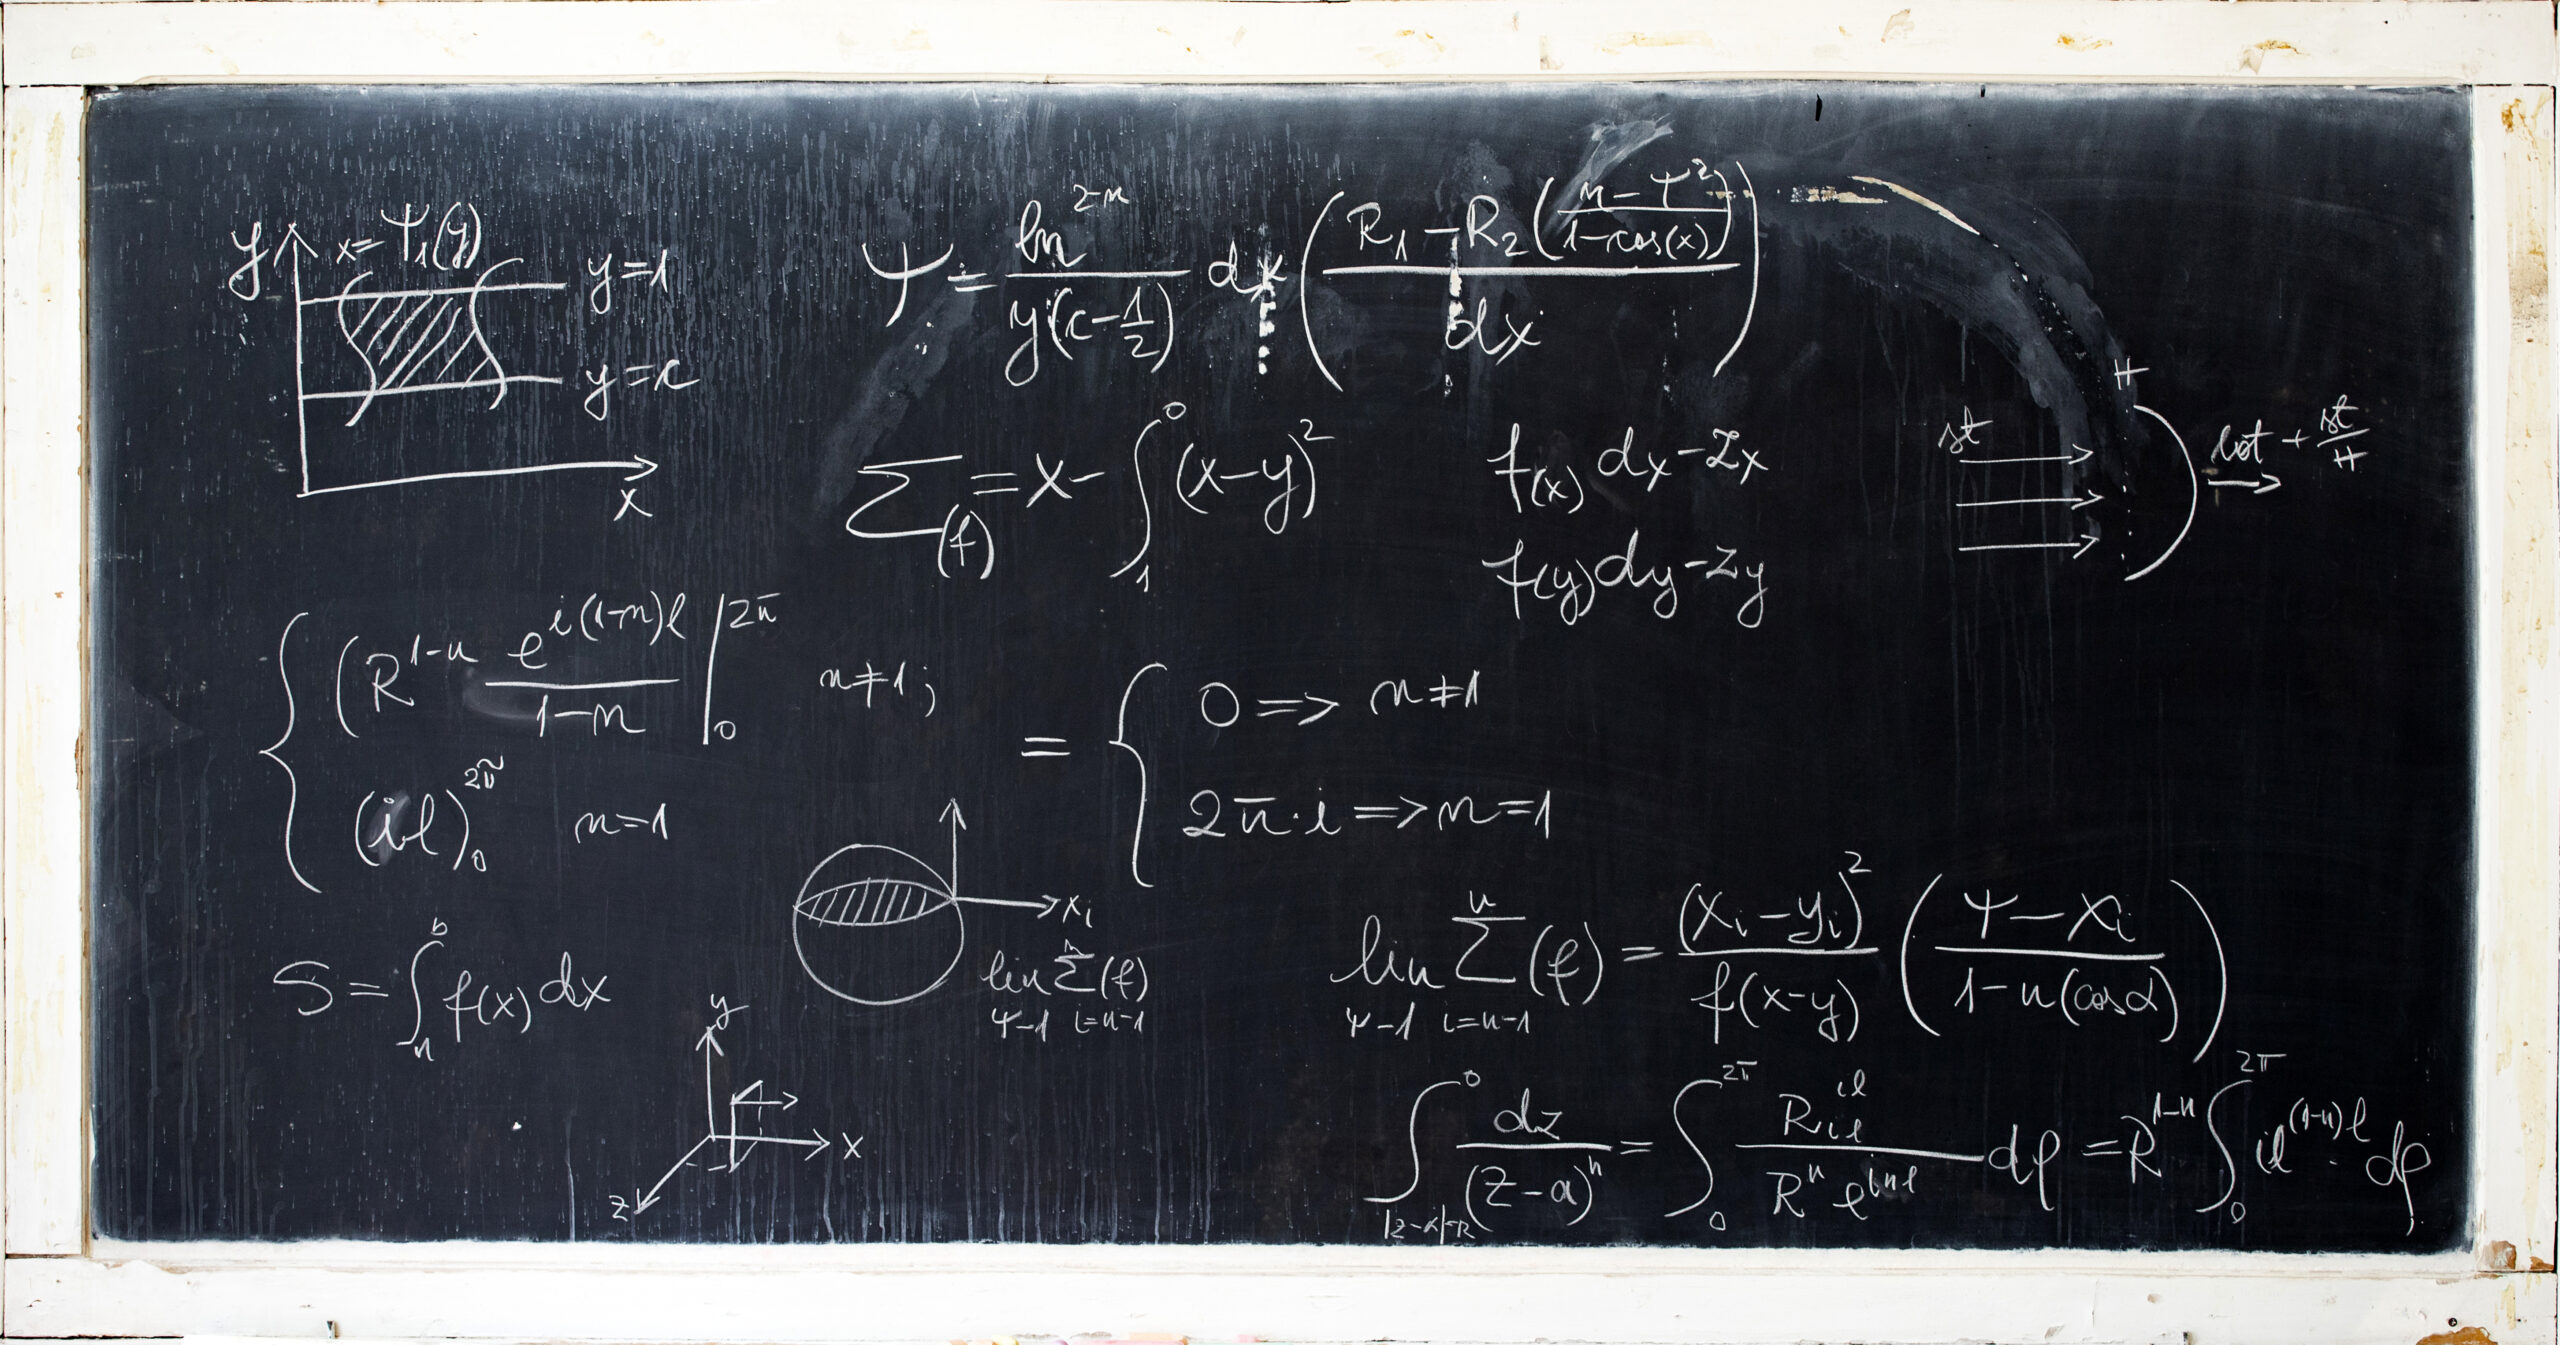 y x=Ψ₁(y)
y=1
y=c
x
Ψ = ln^2n / y(c-1/2) dx ((R₁-R₂((n-Ψ²)/(1-cos(x))))/dx)
Σ(f) = x-∫₁⁰(x-y)²
f(x) dx-Zx
f(y) dy-Zy
st
H
+ st/H
{ (R^1-n e^i(1-n)l / 1-n |₀^2π n≠1;
(il)₀^2π n=1
= { 0 => n≠1
2π·i => n=1
S = ∫ₙᵇ f(x) dx
xi
lin Σⁿ (f)
Ψ-1 i=n-1
y
x
z
lin Σⁿ (f) = (xi-yi)² / f(x-y) (Ψ-xi / 1-n(cosα))
Ψ-1 i=n-1
∫⁰ dz/(z-a)ⁿ = ∫₀^2π R il^il / Rⁿ e^inl dφ = R^1-n ∫₀^2π il^(1-n)l dφ